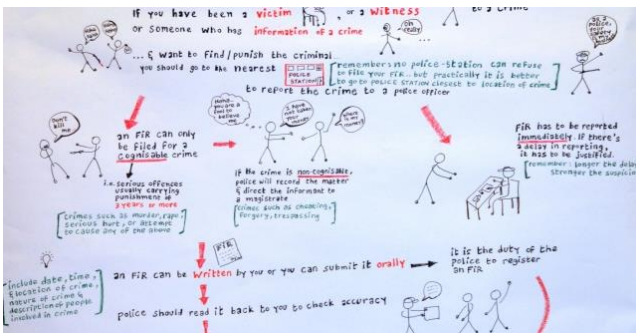 if you have been a victim , or a witness to a crime
or someone who has information of a crime
Oh really
... & want to find/punish the criminal...
you should go to the nearest POLICE STATION
[remember: no police-station can refuse
to file your FIR.. but practically it is better
to go to POLICE STATION closest to location of crime]
to report the crime to a police officer
Don't kill me
an FiR can only
be filed for a
cognisable crime
i.e. serious offences
usually carrying
punishment of
3 years, or more
[crimes such as murder, rape,
serious hurt, or attempt
to cause any of the above]
Haha..
you are a
fool to
believe me
I have not taken your money
where is my money?
if the crime is non-cognisable,
police will record the matter
& direct the informant to
a magistrate
[crimes such as cheating,
forgery, trespassing]
FiR has to be reported
immediately. if there's
a delay in reporting,
it has to be justified.
[remember: longer the delay
stronger the suspicion
FIR
an FiR can be written by you or you can submit it orally
it is the duty of the
police to register
an FiR
include date, time,
& location of crime,
nature of crime &
description of people
involved in crime
police should read it back to you to check accuracy